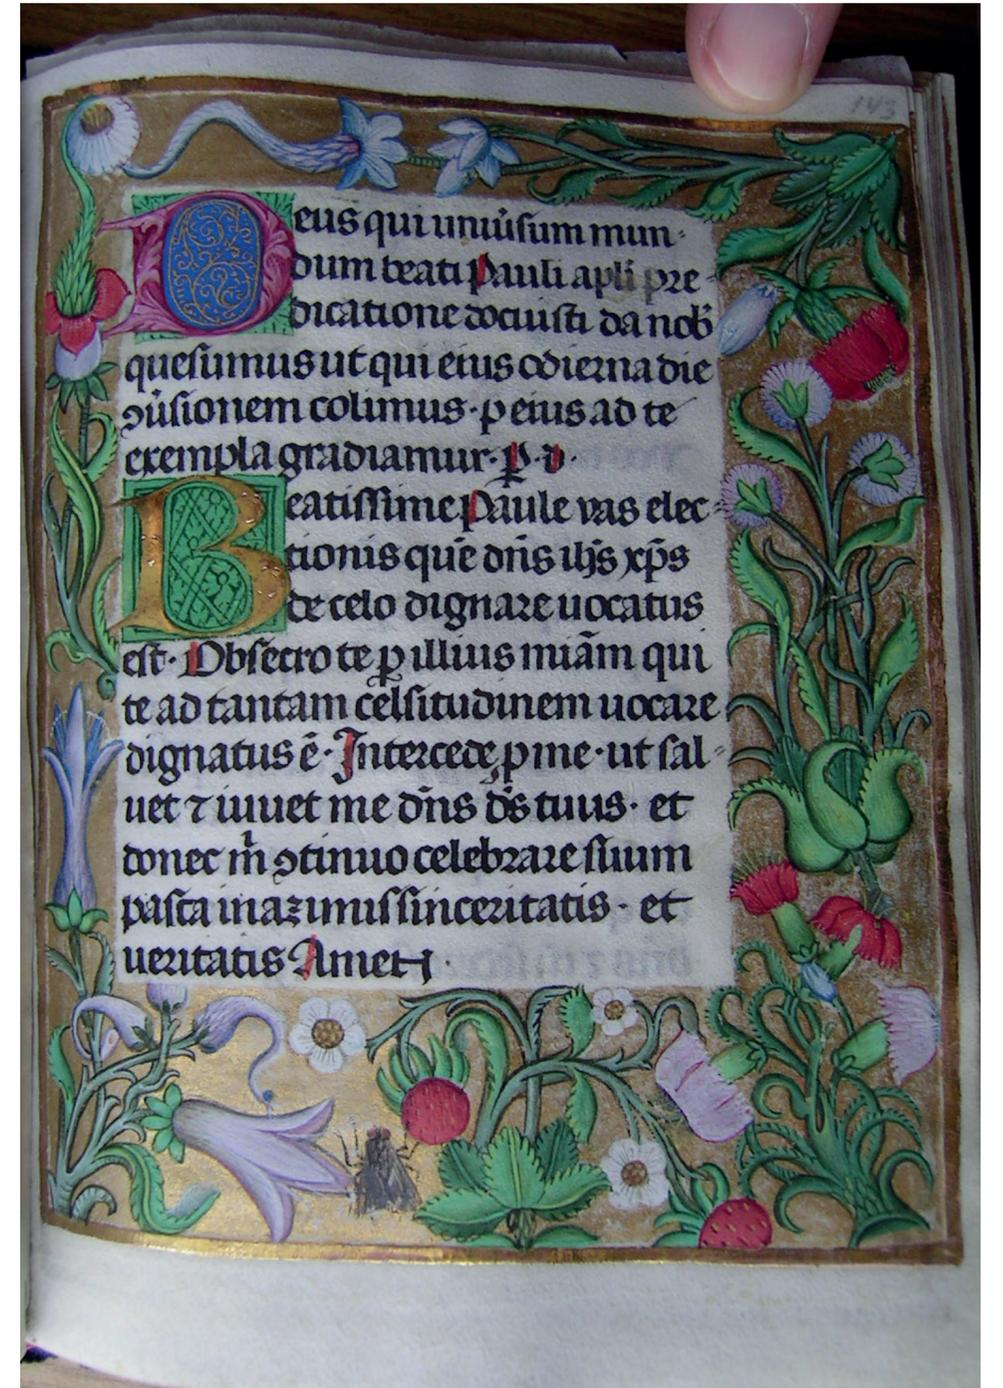 143
Deus qui uniu̾sum mun-
dum beati Pauli apl̄i pre-
dicatione docuisti da nob̾
quesumus ut qui eius odierna die
ꝯu̾sionem colimus · p eius ad te
exempla gradiamur · ꝑ · d ·
Beatissime Paule vas elec-
tionis quē dn̄s ih̄s xp̄s
de celo dignare uocatus
est · Obsecro te ꝑ illius miām qui
te ad tantam celsitudinem uocare
dignatus ē · Intercede p me · ut sal-
uet ⁊ iuuet me dn̄s ds̄ tuus · et
donec m̄ ꝯtinuo celebrare suum
pasca in azimis sinceritatis · et
veritatis Amen ·